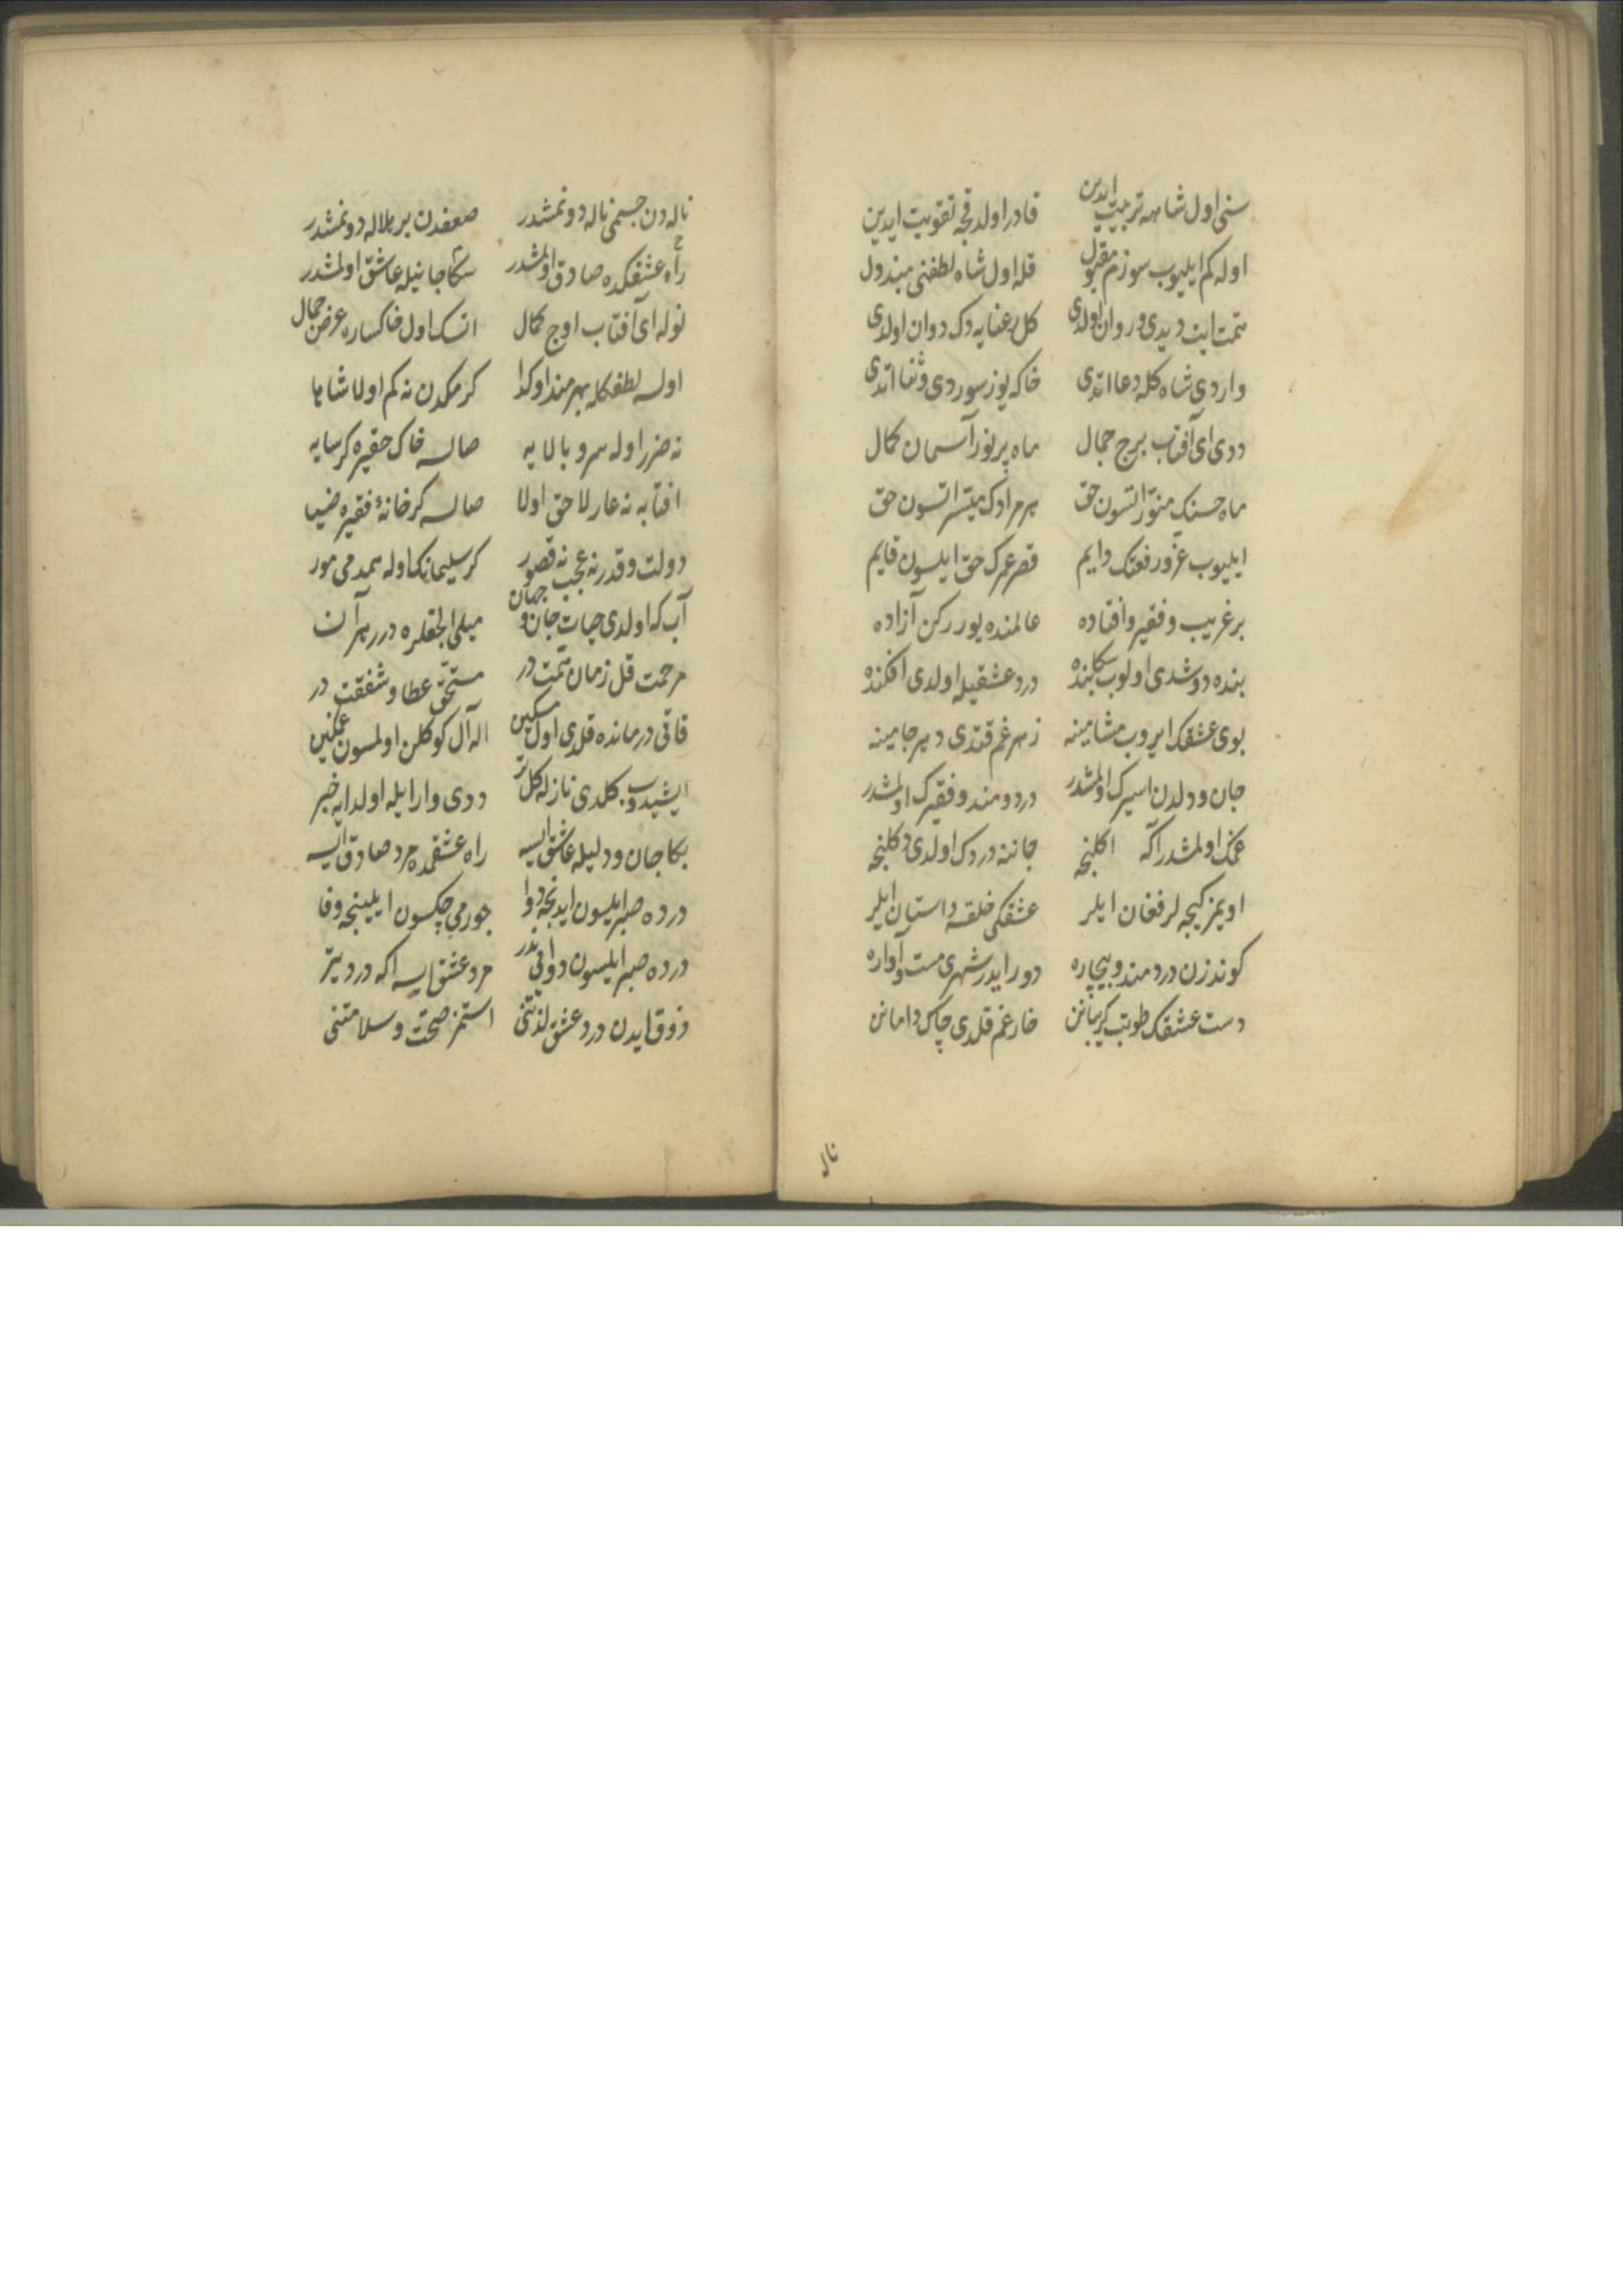 سنی اول شاهه تربیت ایدین قادر اولدقجه تقویت ایدین
اوله کم ایلیوب سوزم مقبول قله اول شاه لطفنی مبذول
همت ایت دیدی و روان اولدی کل رعنایه دک دوان اولدی
واردی شاه کله دعا اتدی خاکه یوز سوردی و ثنا اتدی
ددی ای آفتاب برج جمال ماه پر نور آسمان کمال
ماه حسنک منور اتسون حق هر مرادک میسر اتسون حق
ایلیوب عز و رفعتک دایم قصر عمرک حق ایلسون قایم
بر غریب و فقیر و افتاده عالمنده یوررکن آزاده
بنده دوشدی اولوب سکا بنده درد عشقیله اولدی افکنده
بوی عشقک ایروب مشامینه زهر غم قتدی دهر جامینه
جان و دلدن اسیرک اولمشدر دردومند و فقیرک اولمشدر
غمک اولمشدر اکه اکلنجه جاننه دردک اولدی دکلنجه
اویمز کیجه لر فغان ایلر عشقکی خلقه داستان ایلر
کوندزن دردمند و بیچاره دور ایدر شهری مست و آواره
دست عشقک طوتب کریبانن خار غم قلدی چاک دامانن
ناله
ناله دن جسمی ناله دونمشدر ضعفدن بر هلاله دونمشدر
راه عشقکده صادق اولمشدر سکا جانیله عاشق اولمشدر
نوله ای آفتاب اوج کمال اتسک اول خاکساره عرض جمال
اولسه لطفکله بهره‌مند او کدا کرمکدن نه کم اولا شاها
نه ضرر اوله سرو بالایه صالسه خاک حقیره کر سایه
افتابه نه عار لاحق اولا صالسه کر خانهٔ فقیره ضیا
دولت و قدرنه عجب نه قصور کر سلیمانک اوله همدمی مور
آب که اولدی حیات جان و جهان میلی الچقلره درر هر آن
مرحمت قل زمان همت در مستحق عطا و شفقت در
قاتی درمانده قلدی اول مسکین اله آل کوکلن اولمسون غمکین
ایشیدوب کلدی نازله کل تر ددی وار ایله اولدایه خبر
بکا جان و دلیله عاشق ایسه راه عشقمده مرد صادق ایسه
درده صبر ایلسون ایدنجه دوا جورمی چکسون ایلینجه وفا
درده صبر ایلسون دوا فی ندر مرد عشق ایسه اکه درد یتر
ذوق ایدن درد عشق لذتنی استمز صحت و سلامتنی